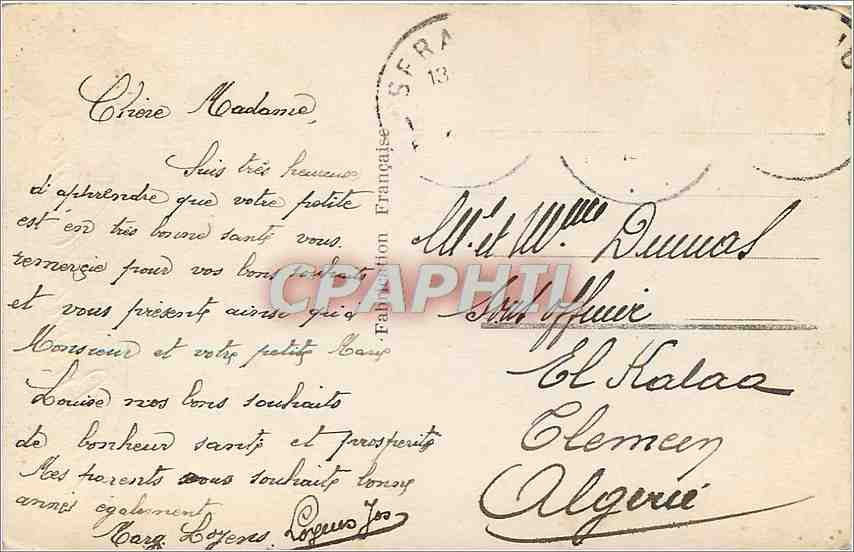 SERA
13
Chère Madame,
Suis très heureuse
d'apprendre que votre petite
est en très bonne santé vous
remercie pour vos bons souhaits
et vous présente ainsi qu'à
Monsieur et votre petite Marie
Louise nos bons souhaits
de bonheur santé et prosperité
Mes parents vous souhaite bonne
année également
Marg
Fabrication Française
Mr et Mme Dumas
Sous officier
El Kalaa
Tlemcen
Algerie
CPAPHIL